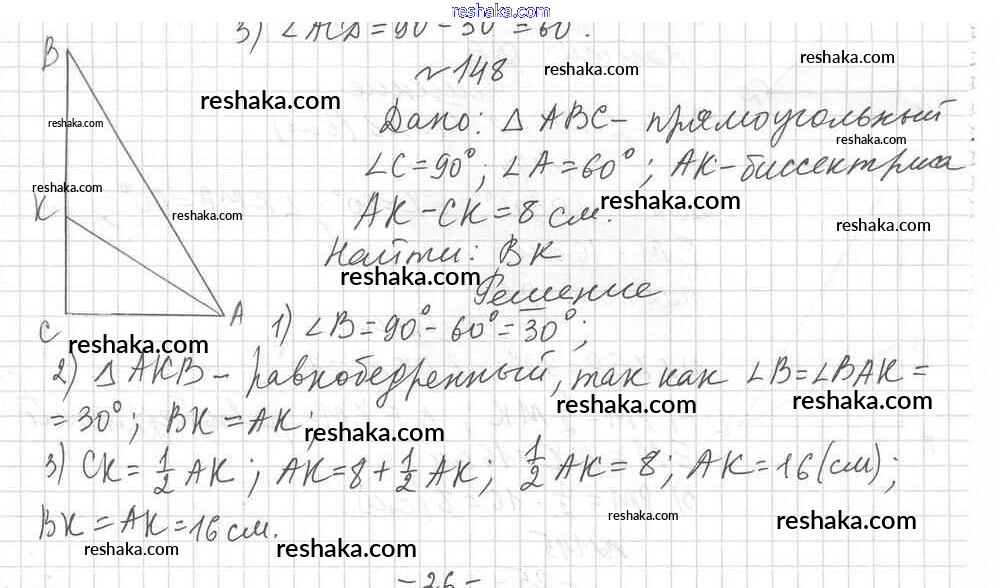 reshaka.com
3) ∠ACD = 90° - 30° = 60°.
B
reshaka.com
№ 148
reshaka.com
reshaka.com
Дано: △ ABC - прямоугольный
reshaka.com
reshaka.com
∠C = 90°; ∠A = 60°; AK - биссектриса
reshaka.com
K
AK - CK = 8 см.
reshaka.com
reshaka.com
reshaka.com
Найти: BK
reshaka.com
Решение
C
A
1) ∠B = 90° - 60° = 30°;
reshaka.com
2) △ AKB - равнобедренный, так как ∠B = ∠BAK =
reshaka.com
reshaka.com
= 30°; BK = AK;
reshaka.com
3) CK = 1/2 AK; AK = 8 + 1/2 AK; 1/2 AK = 8; AK = 16 (см);
BK = AK = 16 см.
reshaka.com
reshaka.com
reshaka.com
reshaka.com
- 26 -